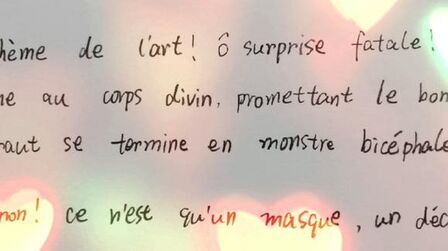 hème de l'art! ô surprise fatale!
ne au corps divin, promettant le bon
aut se termine en monstre bicéphale
non! ce n'est qu'un masque, un déc